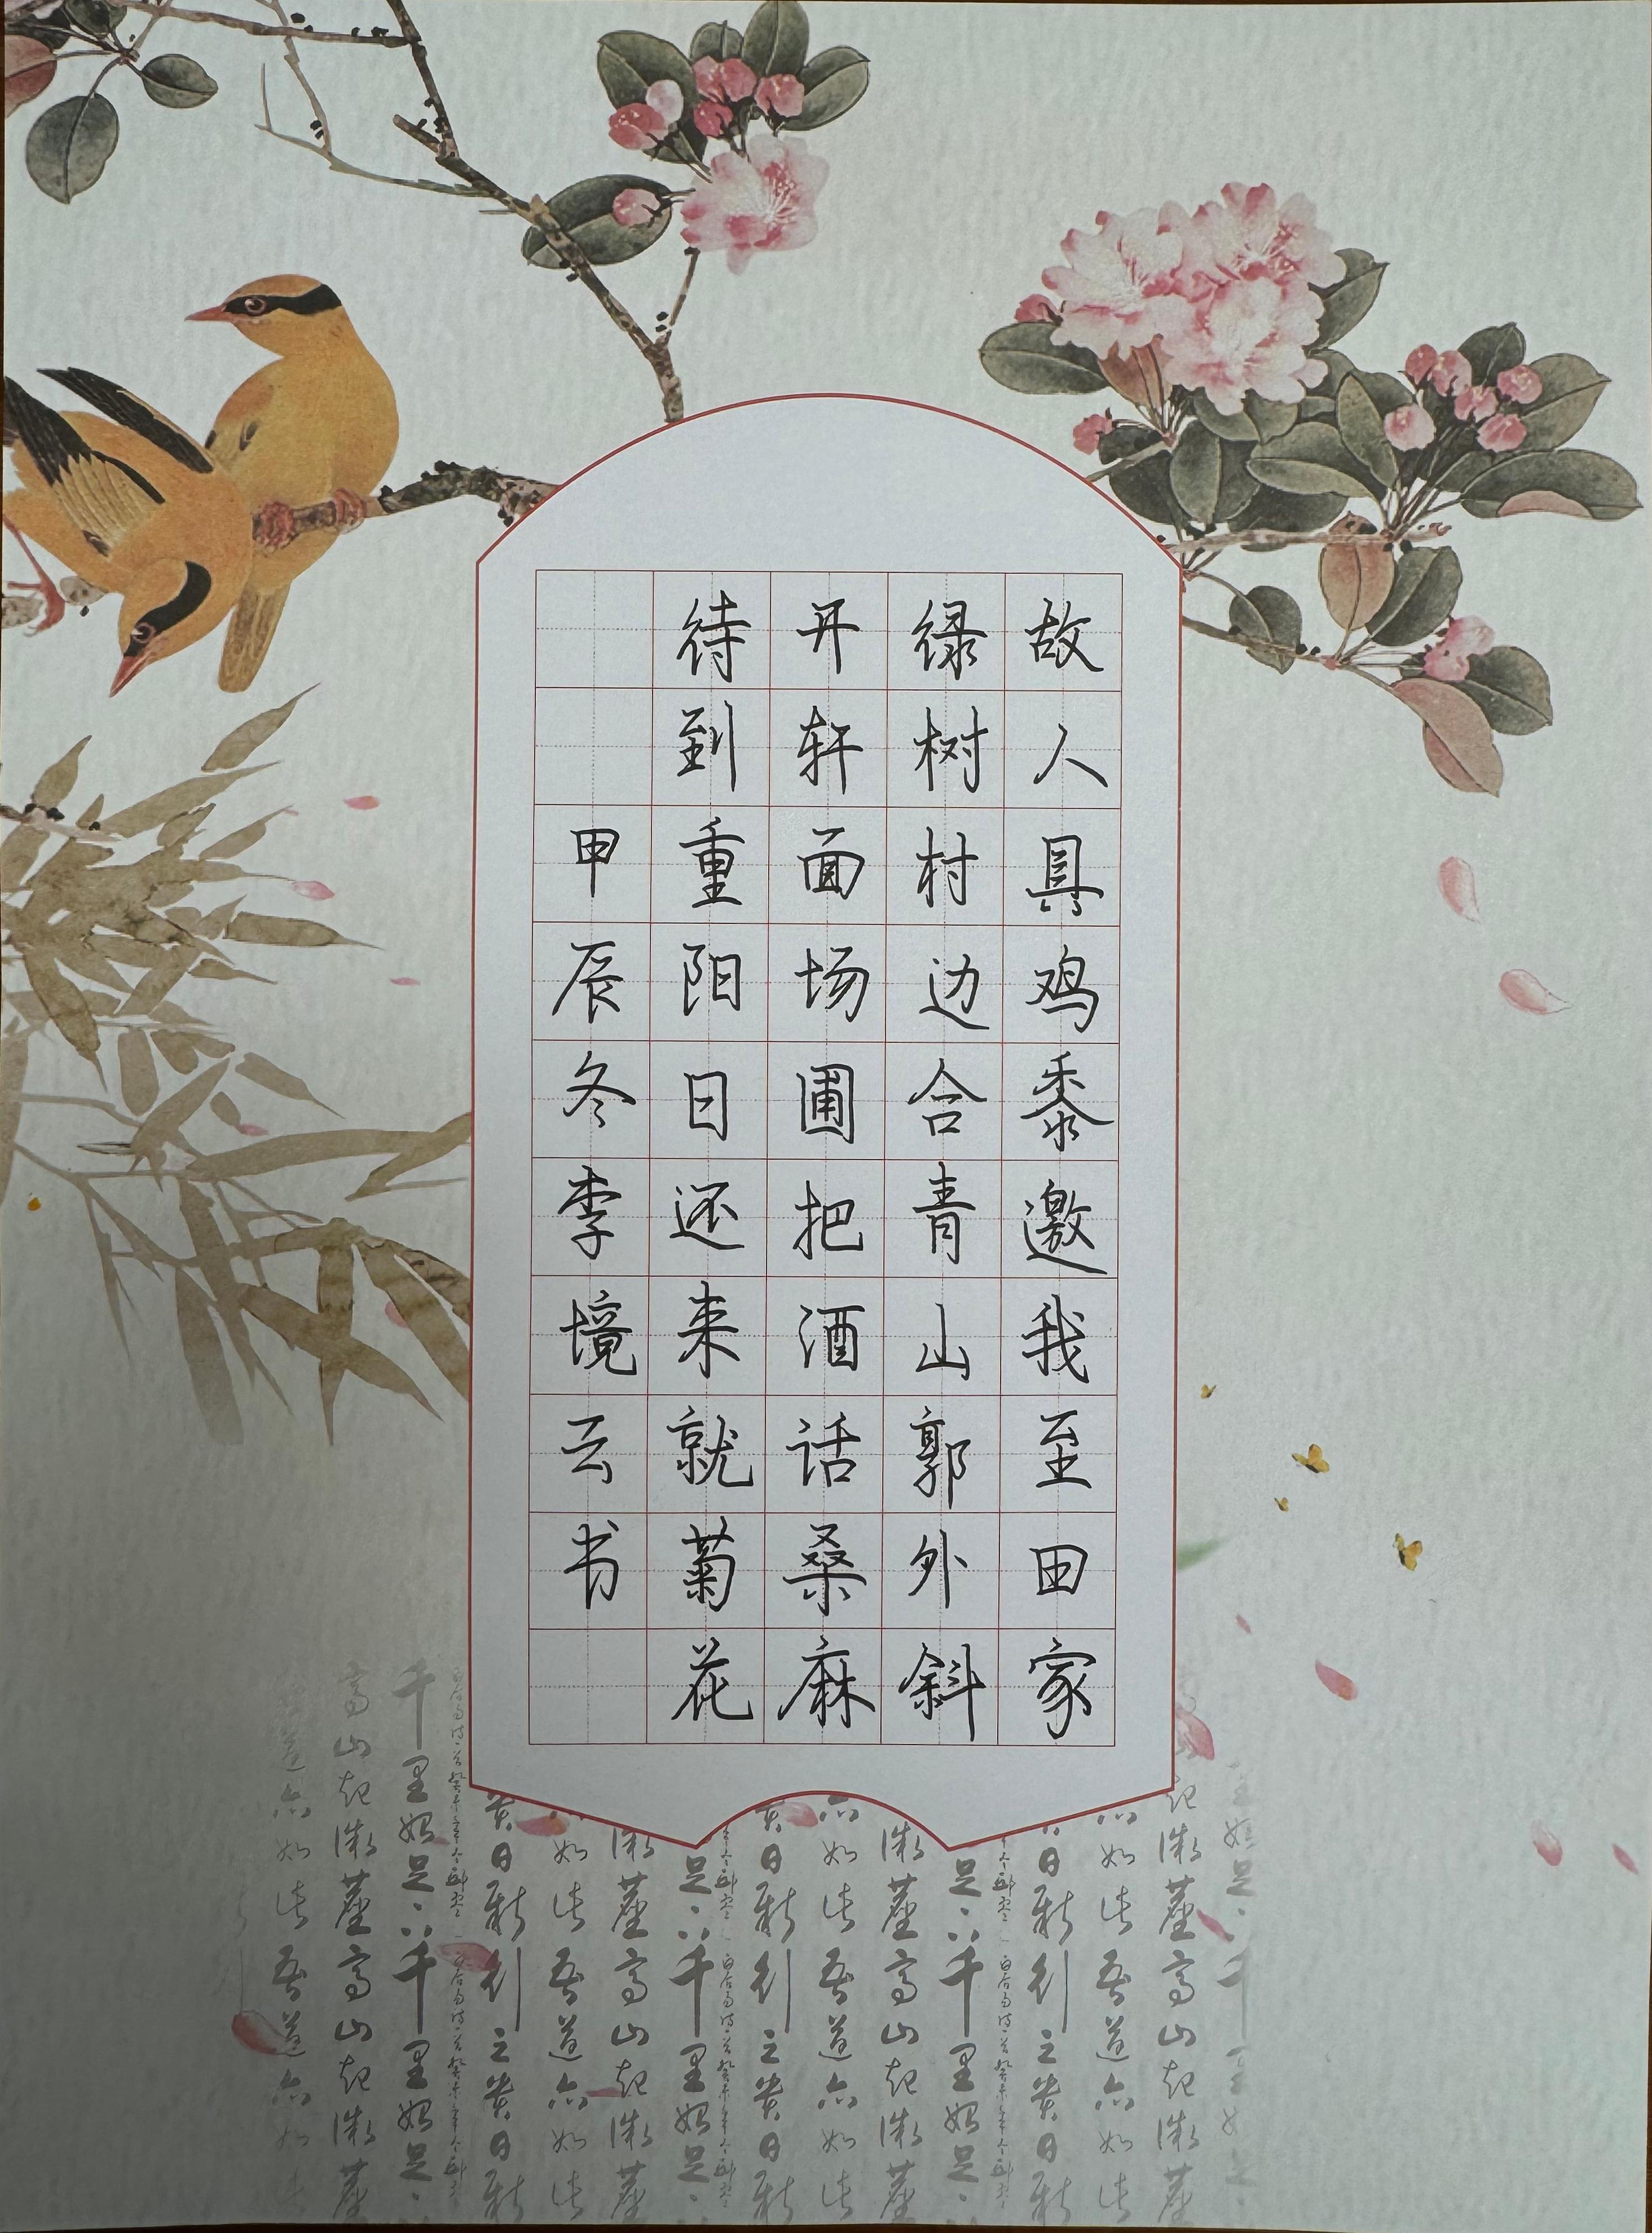 故人具鸡黍邀我至田家
绿树村边合青山郭外斜
开轩面场圃把酒话桑麻
待到重阳日还来就菊花
甲辰冬李境云书